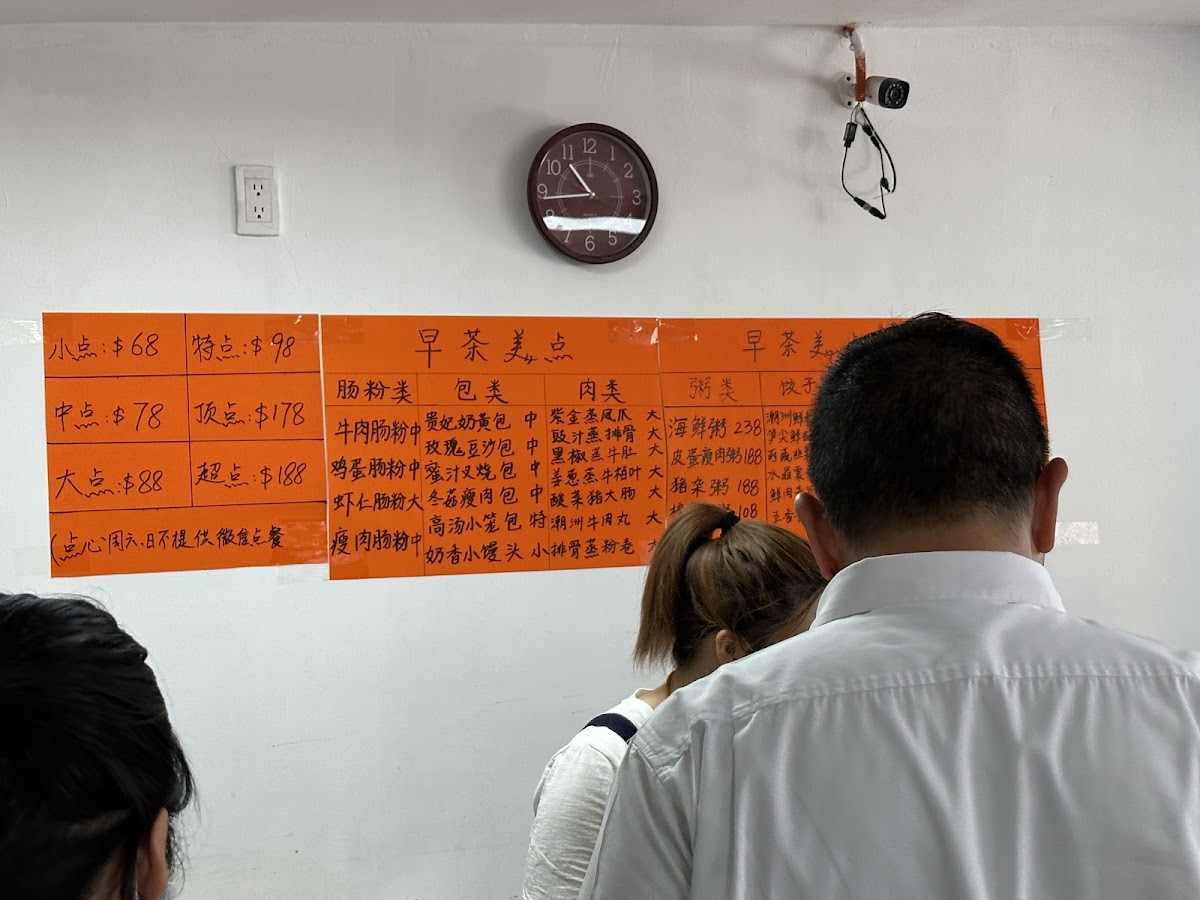 小点:$68
特点:$98
中点:$78
顶点:$178
大点:$88
超点:$188
(点心周六.日不提供微信点餐
早茶美点
肠粉类
牛肉肠粉 中
鸡蛋肠粉 中
虾仁肠粉 大
瘦肉肠粉 中
包类
贵妃奶黄包 中
玫瑰豆沙包 中
蜜汁叉烧包 中
冬菇瘦肉包 中
高汤小笼包 特
奶香小馒头 小
肉类
紫金蒸凤爪 大
豉汁蒸排骨 大
黑椒蒸牛肚 大
姜葱蒸牛柏叶 大
酸菜猪大肠 大
潮洲牛肉丸 大
排骨蒸粉卷 大
早茶美
粥类
海鲜粥 238
皮蛋瘦肉粥 188
猪杂粥 188
108
饺子
潮洲
笋尖鲜
水晶
鲜肉
12 1 2 3 5 6 8 9 10 11